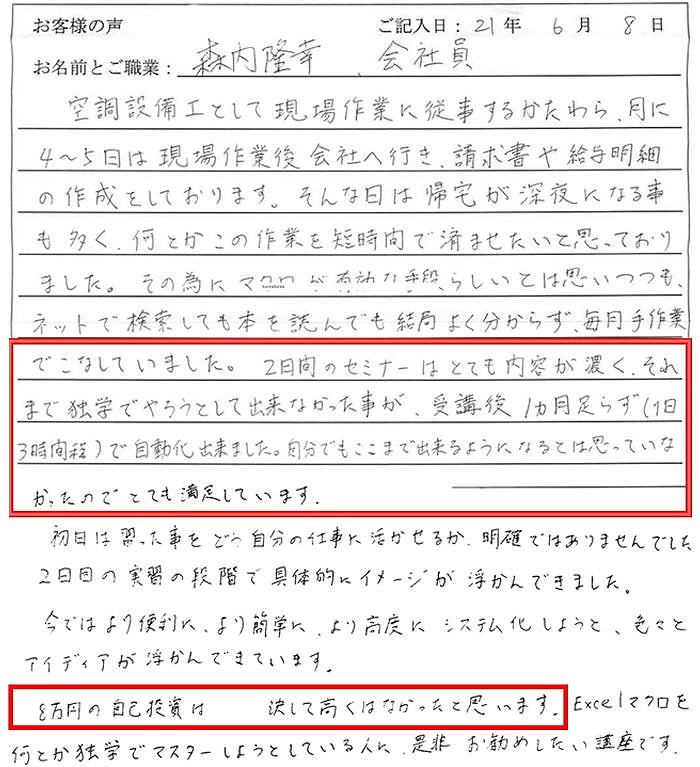 お客様の声 ご記入日：21年 6月 8日
お名前とご職業：森内隆幸、会社員
空調設備工として現場作業に従事するかたわら、月に
4～5日は現場作業後会社へ行き、請求書や給与明細
の作成をしております。そんな日は帰宅が深夜になる事
も多く、何とかこの作業を短時間で済ませたいと思っており
ました。その為にマクロが有効な手段らしいとは思いつつも、
ネットで検索しても本を読んでも結局よく分からず、毎月手作業
でこなしていました。2日間のセミナーはとても内容が濃く、それ
まで独学でやろうとして出来なかった事が、受講後1カ月足らず(1日
3時間程)で自動化出来ました。自分でもここまで出来るようになるとは思っていな
かったのでとても満足しています。
初日は習った事をどう自分の仕事に活かせるか、明確ではありませんでした
2日目の実習の段階で具体的にイメージが浮かんできました。
今ではより便利に、より簡単に、より高度にシステム化しようと、色々と
アイディアが浮かんできています。
8万円の自己投資は 決して高くはなかったと思います。Excelマクロを
何とか独学でマスターしようとしている人に、是非お勧めしたい講座です。